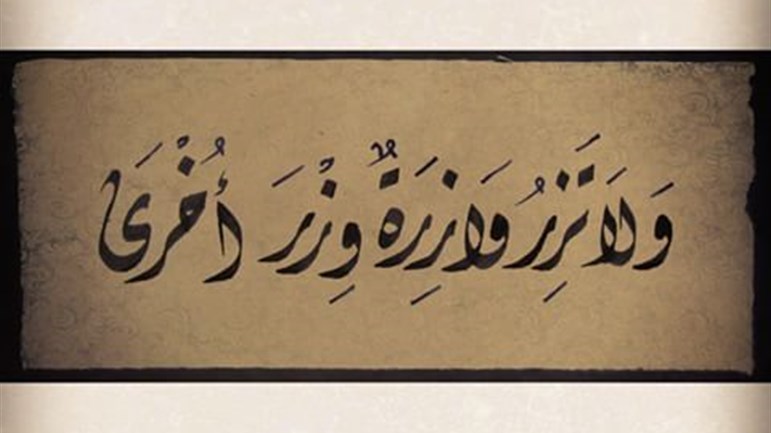 وَلَا تَزِرُ وَازِرَةٌ وِزْرَ أُخْرَىٰ